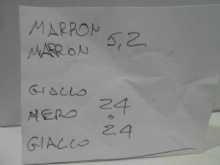 MARRON
MARRON 5,2
GIALLO
NERO 24
GIALLO 24